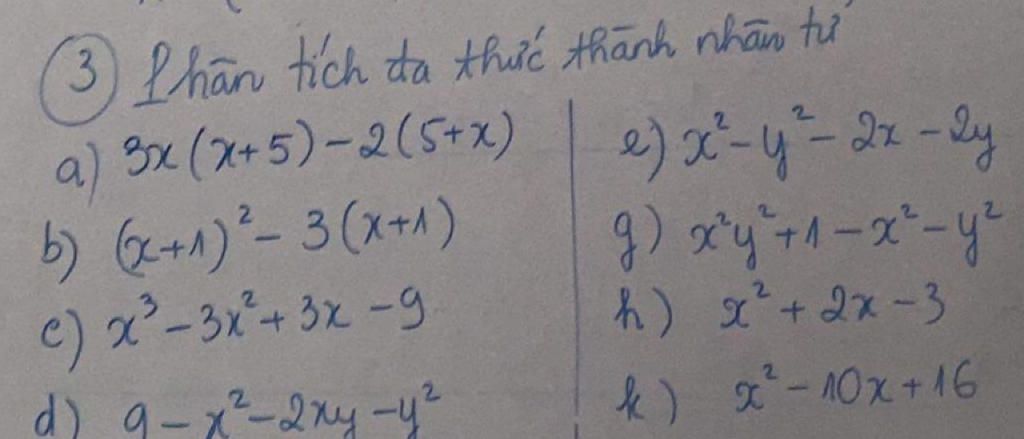 ③ Phân tích đa thức thành nhân tử
a) 3x(x+5)-2(5+x)
b) (x+1)²-3(x+1)
c) x³-3x²+3x-9
d) 9-x²-2xy-y²
e) x²-y²-2x-2y
g) x²y²+1-x²-y²
h) x²+2x-3
k) x²-10x+16